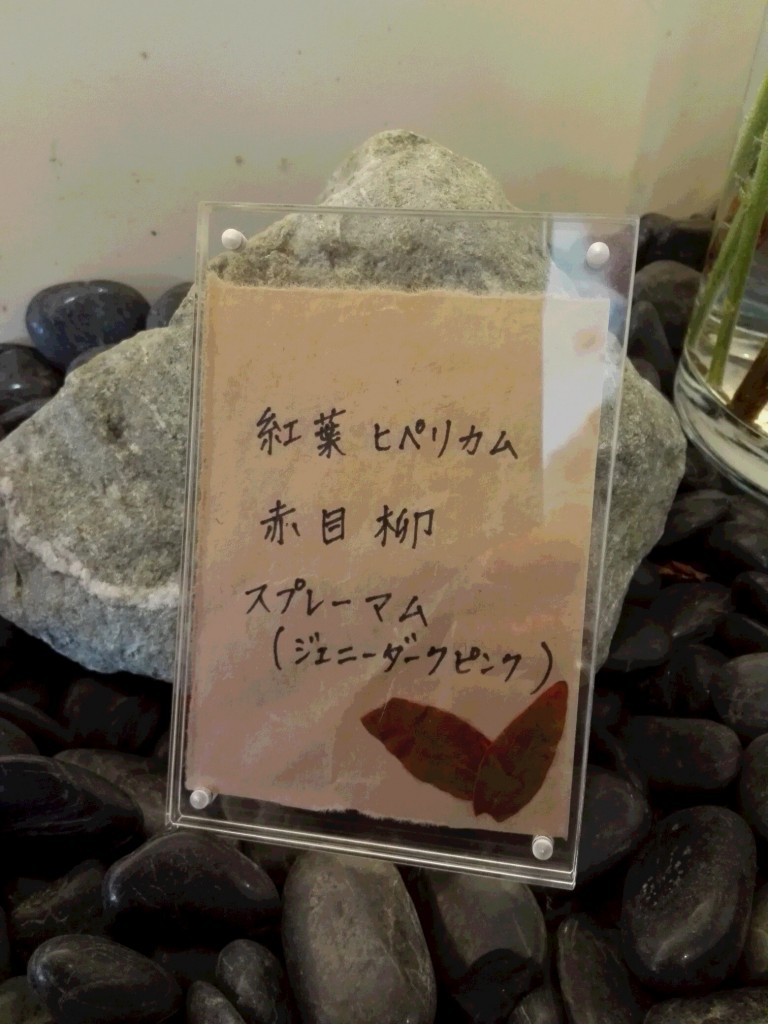 紅葉 ヒペリカム
赤目柳
スプレーマム
(ジェニーダークピンク)